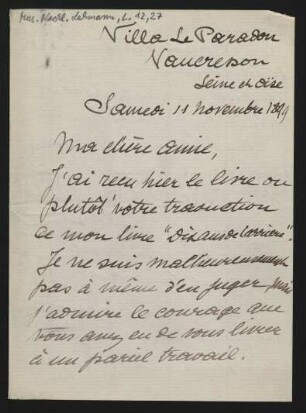 Mus. Nachl. Lehmann, L. 12,27
Villa Le Paradou
Vaucresson
Seine et Oise
Samedi 11 Novembre 1899
Ma chère amie,
J'ai reçu hier le livre ou
plutôt votre traduction
de mon livre "Dix ans de carrière".
Je ne suis malheureusement
pas à même d'en juger, mais
j'admire le courage que
vous avez eu de vous livrer
à un pareil travail.